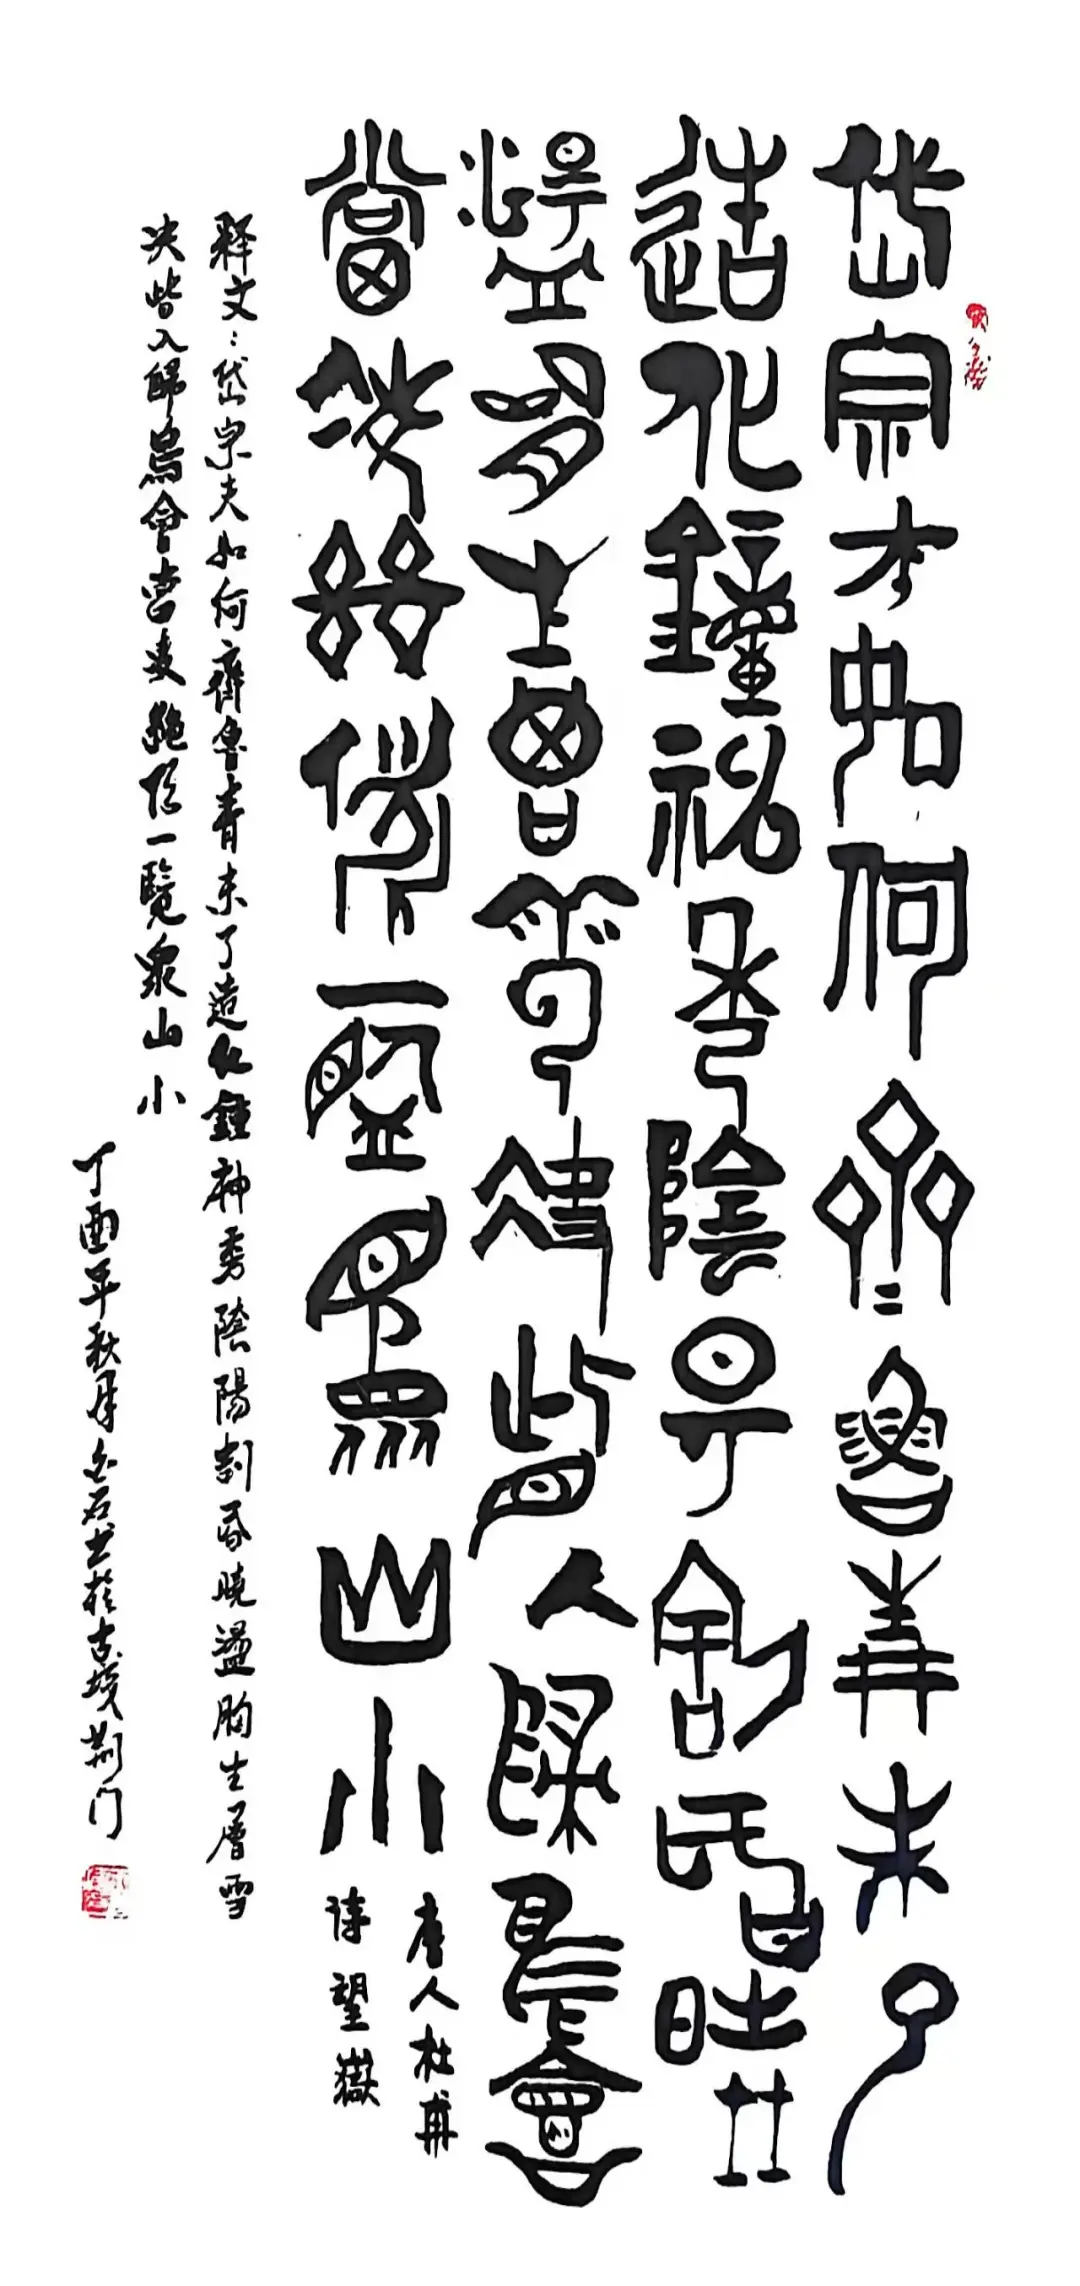 岱宗夫如何齊魯青未了
造化鐘神秀陰陽割昏曉
盪胸生曾雲決眥入歸鳥會
當凌絕頂一覽眾山小
唐人杜甫
诗望嶽
释文：岱宗夫如何齊魯青未了造化鍾神秀陰陽割昏曉盪胸生層雲
决眥入歸鳥會當凌絕頂一覽眾山小
丁酉年秋月石书於古荆门